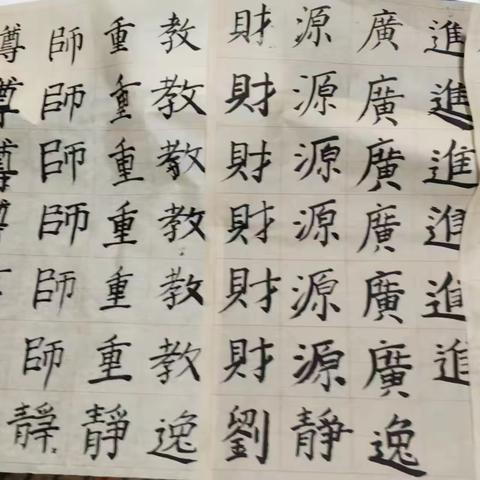 尊師重教財源廣進
尊師重教財源廣進
尊師重教財源廣進
尊師重教財源廣進
師重教財源廣進
師重教財源廣進
靜靜逸劉靜逸